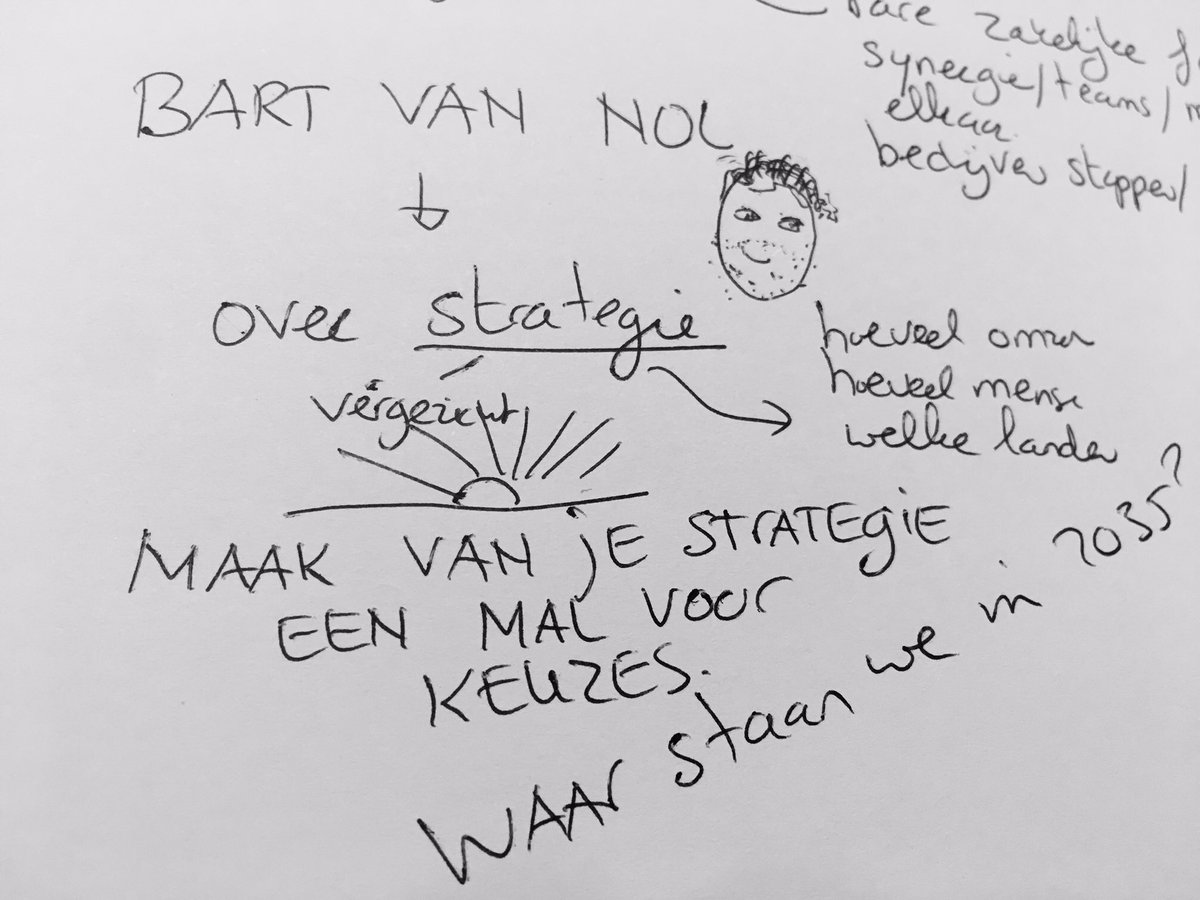 zakelijke
synergie/teams/
elkaar.
bedrijven stappen/
BART VAN NOL
over strategie
vergezicht
hoeveel
hoeveel mense
welke landen
MAAK VAN jE STRATEGIE
EEN MAL VOOR
KEUZES.
WAAR staan we in 2035?